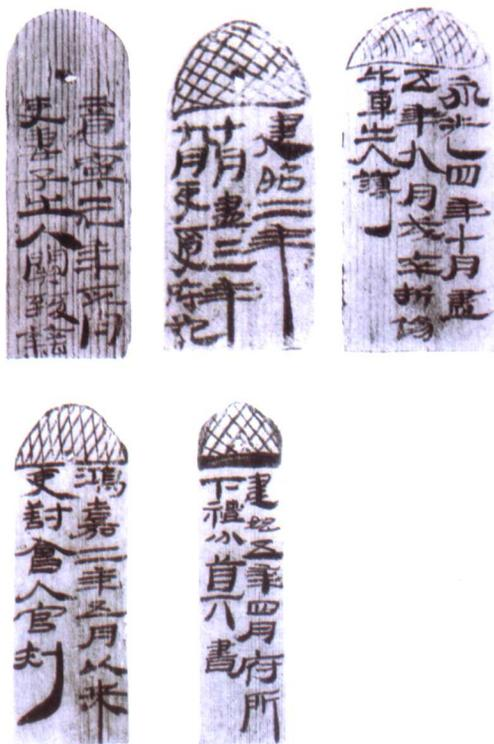 竟寧元年正月
吏妻子出入關致籍
建昭二年
十月盡三年
九月吏受府記
永光四年十月盡
五年九月戍卒折傷
牛車出入簿
鴻嘉二年五月以來
吏對會入官刺
建始五年四月府所
下禮書